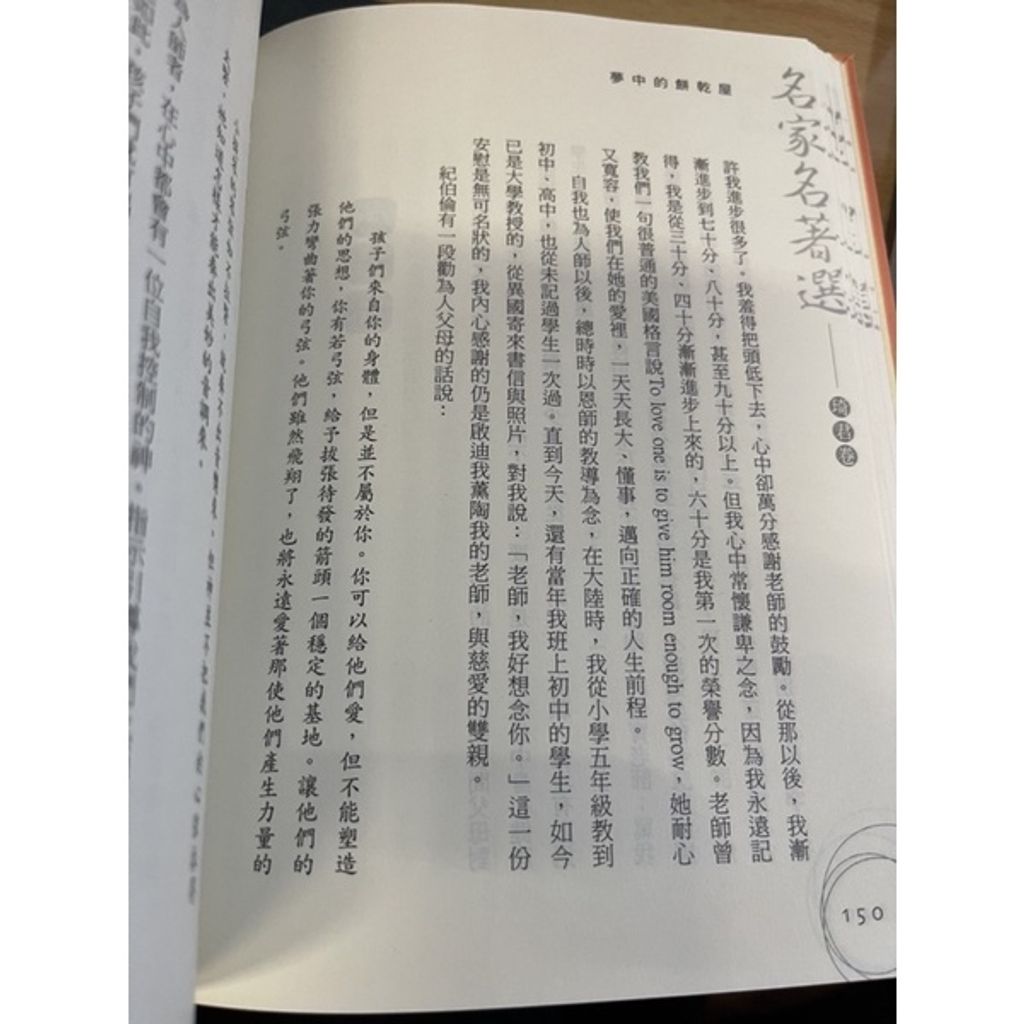 名家名著選
琦君卷
夢中的餅乾屋
許我進步很多了。我羞得把頭低下去，心中卻萬分感謝老師的鼓勵。從那以後，我漸
漸進步到七十分、八十分，甚至九十分以上。但我心中常懷謙卑之念，因為我永遠記
得，我是從三十分、四十分漸漸進步上來的，六十分是我第一次的榮譽分數。老師曾
教我們一句很普通的美國格言說To love one is to give him room enough to grow，她耐心
又寬容，使我們在她的愛裡，一天天長大、懂事，邁向正確的人生前程。
自我也為人師以後，總時時以恩師的教導為念，在大陸時，我從小學五年級教到
初中、高中，也從未記過學生一次過。直到今天，還有當年我班上初中的學生，如今
已是大學教授的，從異國寄來書信與照片，對我說：「老師，我好想念你。」這一份
安慰是無可名狀的，我內心感謝的仍是啟迪我薰陶我的老師，與慈愛的雙親。
紀伯倫有一段勸為人父母的話說：
孩子們來自你的身體，但是並不屬於你。你可以給他們愛，但不能塑造
他們的思想，你有若弓弦，給予拔張待發的箭頭一個穩定的基地。讓他們的
張力彎曲著你的弓弦。他們雖然飛翔了，也將永遠愛著那使他們產生力量的
弓弦。
150
為人師者，在心中都會有一位自我控制的神。指示引